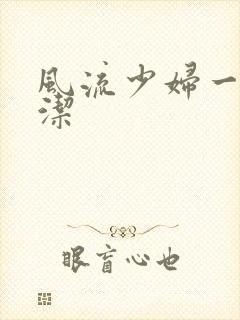 風流少婦一
潔
眼盲心也